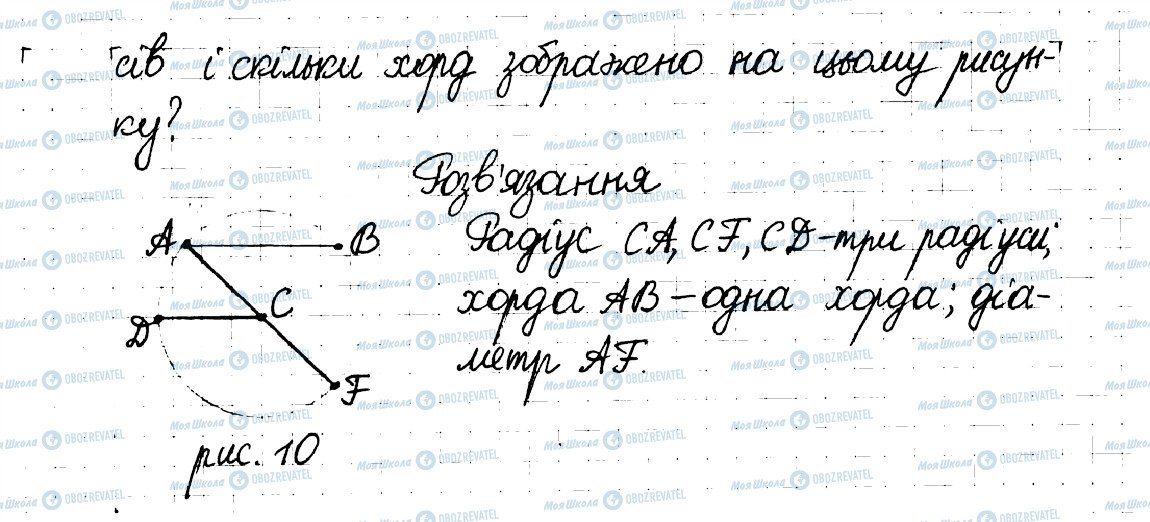 сів і скільки хорд зображено на цьому рисун-
ку?
Розв'язання
A B
Радіус CA, CF, CD - три радіуси;
D C
хорда AB - одна хорда; діа-
метр AF.
F
рис. 10
МояШкола OBOZREVATEL